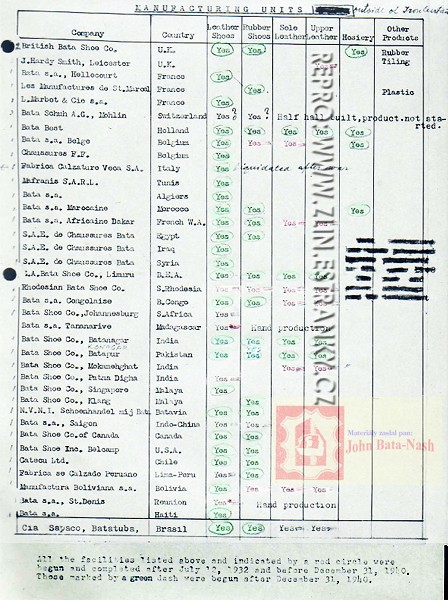 MANUFACTURING UNITS outside of
Company Country Leather Shoes Rubber Shoes Sole Leather Upper Leather Hosiery Other Products
British Bata Shoe Co. U.K. Yes Yes Yes Rubber Tiling
J.Hardy Smith, Leicester U.K. Yes
Bata s.a., Hellocourt France Yes
Les Manufactures de St.Marcel France Yes Plastic
L.Marbot & Cie s.a. France Yes
Bata Schuh A.G., Mohlin Switzerland Yes? Yes? Half hall built,product.not started.
Bata Best Holland Yes Yes Yes Yes Yes
Bata s.a. Belge Belgium Yes Yes Yes Yes
Chaussures F.F. Belgium Yes
Fabrica Calzature Veca S.A. Italy Yes liquidated after war
Mafranis S.A.R.L. Tunis Yes
Bata s.a. Algiers Yes
Bata s.a. Marocaine Morocco Yes Yes Yes
Bata s.a. Africaine Dakar French W.A. Yes Yes Yes Yes
S.A.E. de Chaussures Bata Egypt Yes Yes
S.A.E. de Chaussures Bata Iraq Yes
S.A.E. de Chaussures Bata Syria Yes
Bata Shoe Co., Limuru B.E.A. Yes Yes Yes Yes
Rhodesian Bata Shoe Co. S.Rhodesia Yes Yes Yes Yes
Bata s.a. Congolaise B.Congo Yes Yes Yes
Bata Shoe Co.,Johannesburg S.Africa Yes
Bata s.a. Tananarive Madagascar Yes Hand production
Bata Shoe Co., Batanagar India Yes Yes Yes Yes
KONAGAR
Bata Shoe Co., Batapur Pakistan Yes Yes Yes Yes
Bata Shoe Co., Mokamehghat India Yes Yes
Bata Shoe Co., Patna Digha India Yes
Bata Shoe Co., Singapore Malaya Yes
Bata Shoe Co., Klang Malaya Yes
N.V.N.I. Schoenhandel mij Bata Batavia Yes Yes
Bata s.a., Saigon Indo-China Yes Yes
Bata Shoe Co.of Canada Canada Yes Yes
Bata Shoe Inc. Belcamp U.S.A. Yes Yes
Catecu Ltd. Chile Yes Yes
Fabrica de Calzado Peruano Lima-Peru Yes Yes
Manufactura Boliviana s.a. Bolivia Yes Yes Yes Yes
Bata s.a., St.Denis Reunion Yes Hand production
Bata s.a. Haiti Yes
Cia Sapaco, Batatuba, Brasil Yes Yes Yes Yes
All the facilities listed above and indicated by a red circle were
begun and completed after July 12, 1932 and before December 31, 1940.
Those marked by a green dash were begun after December 31, 1940.
REPRO:WWW.ZINLESTRANKY.CZ
Materiály nadal pan:
John Bata-Nash